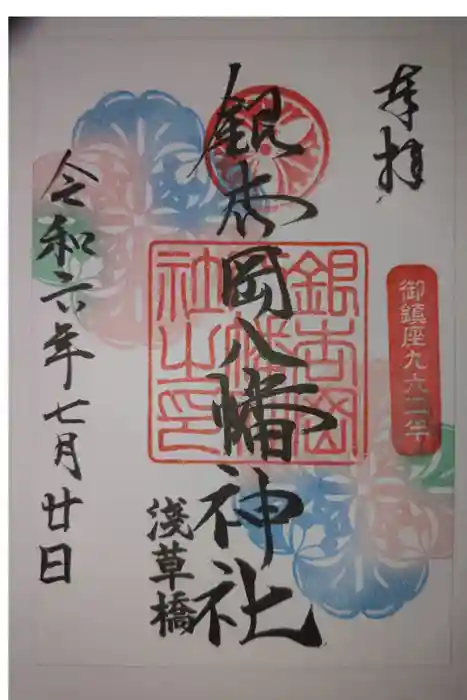 奉拝
御鎮座九六二年
銀杏岡八幡神社
銀杏岡
八幡神
社之印
淺草橋
令和六年七月廿日